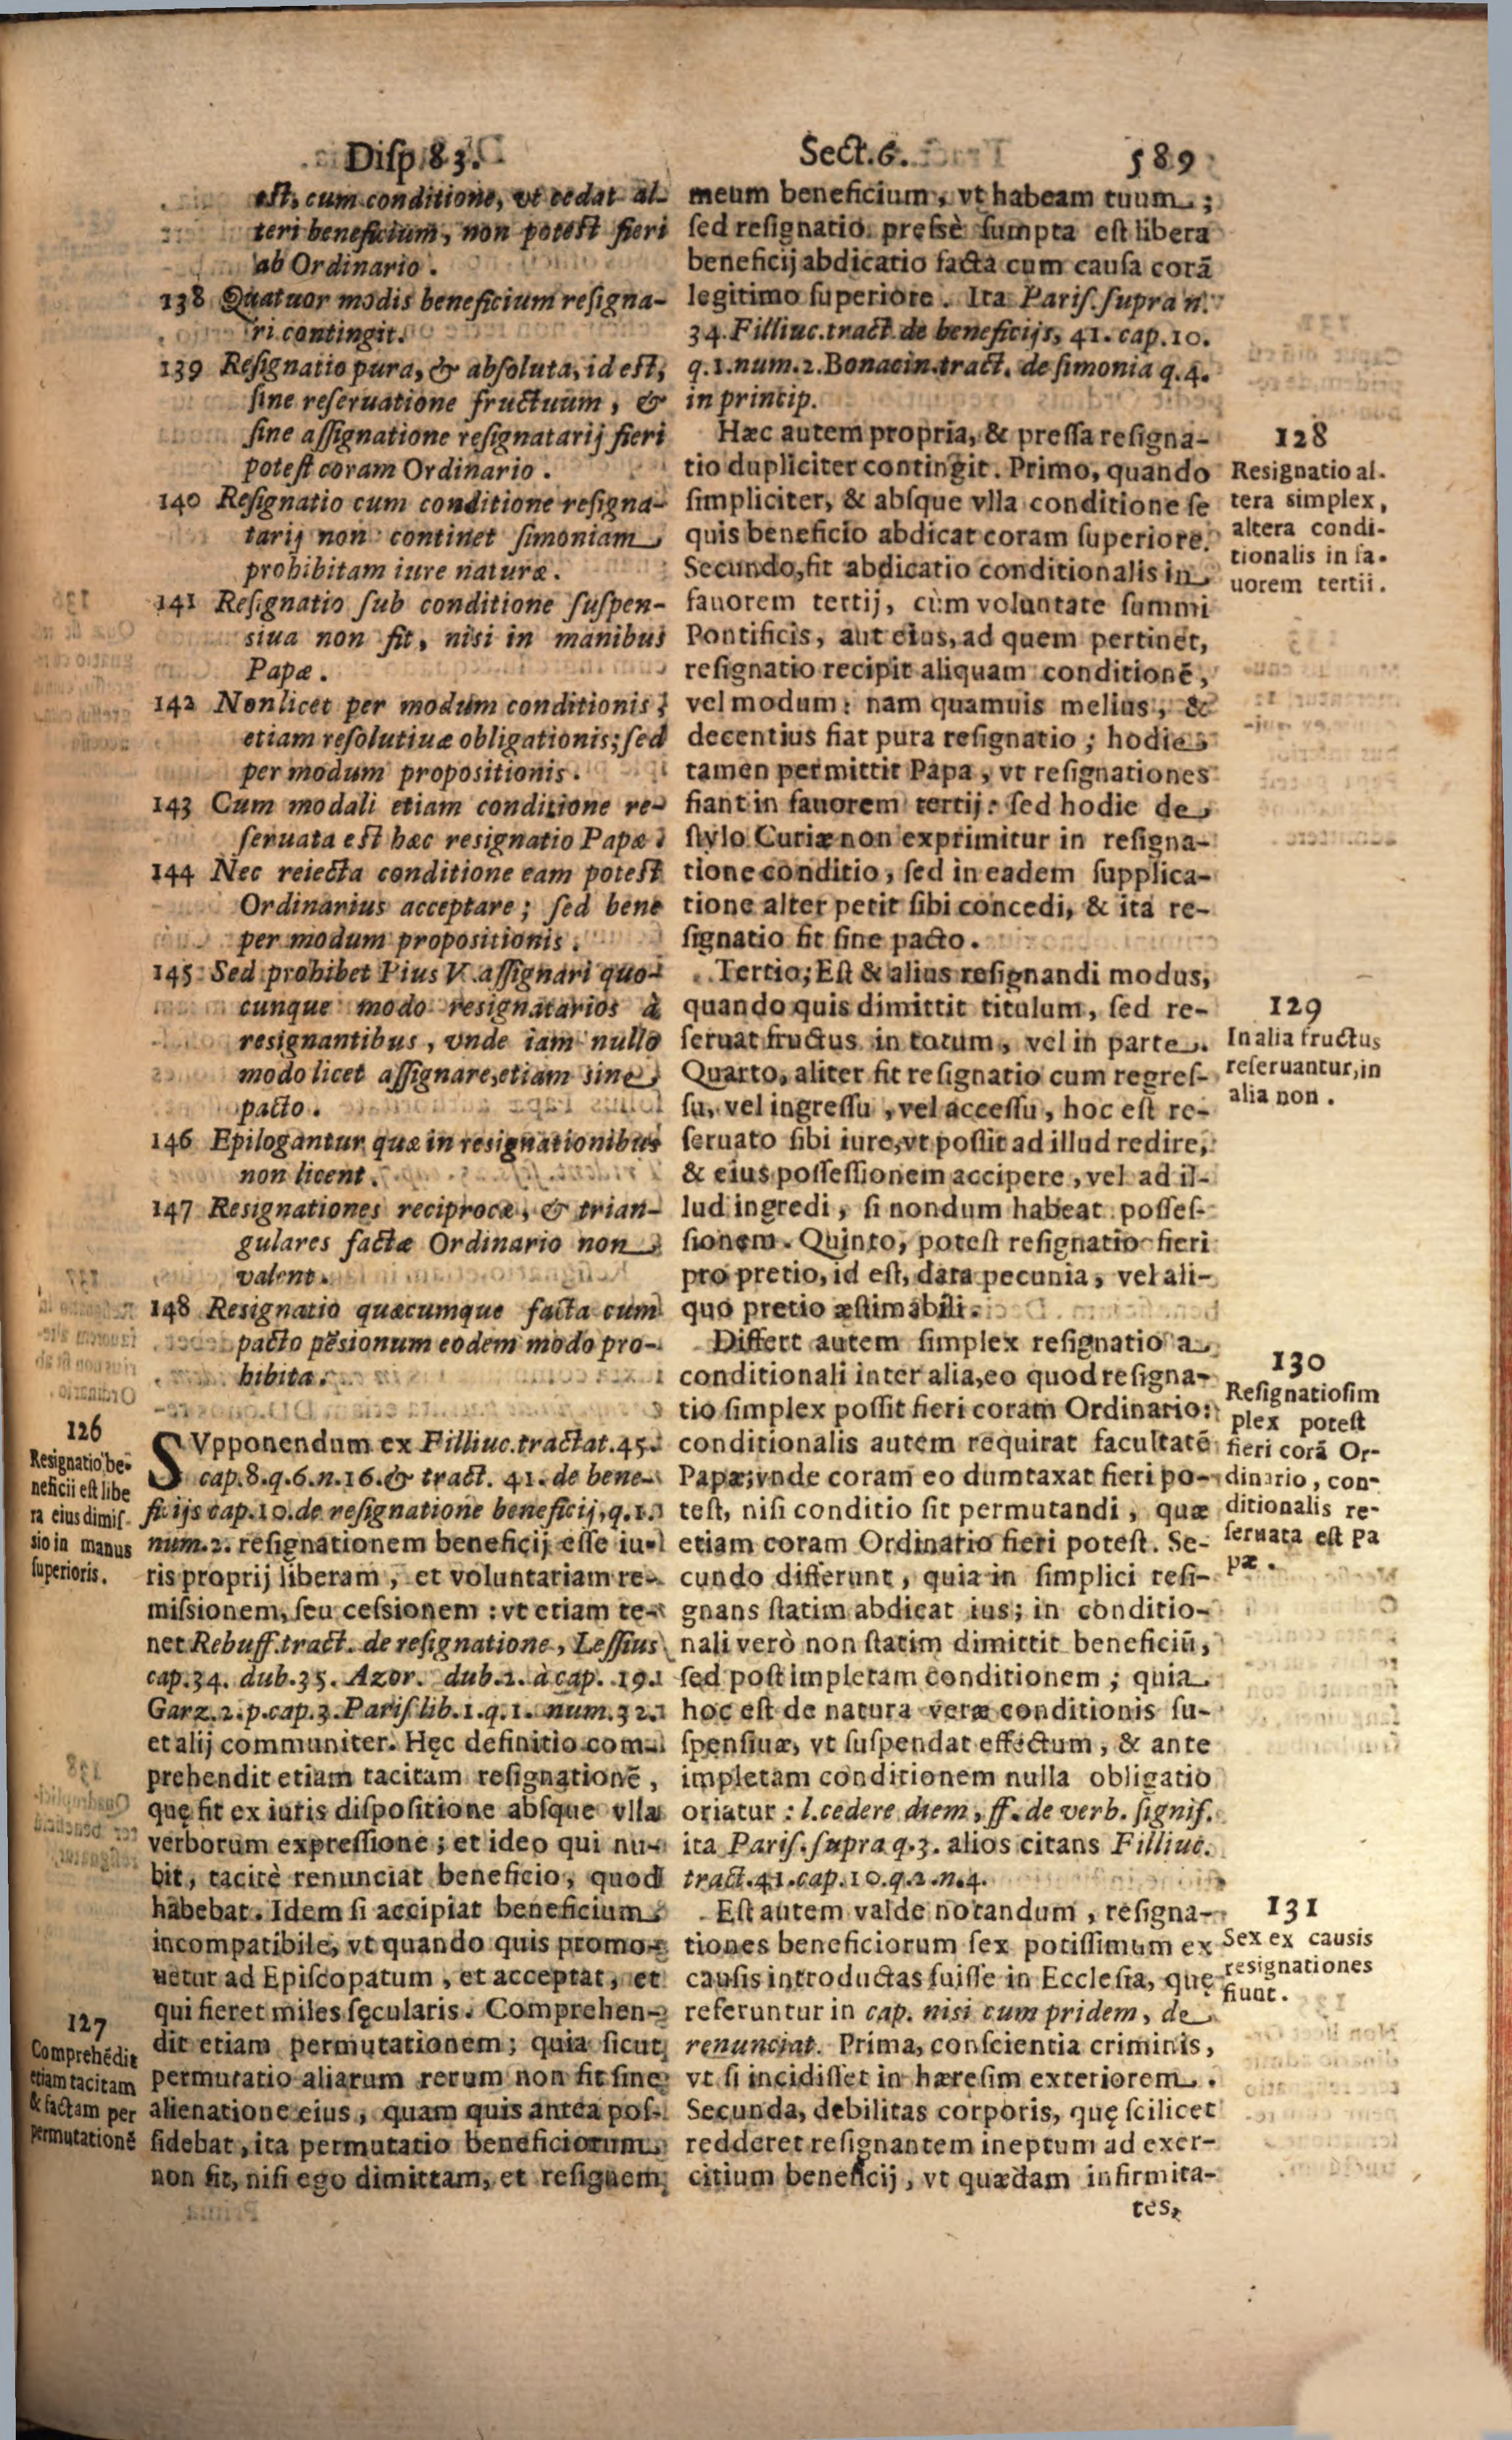 Disp. 83. Sect. 6. 589
est, cum conditione, vt cedat al-
teri beneficium, non potest fieri
ab Ordinario.
138 Quatuor modis beneficium resigna-
ri contingit.
139 Resignatio pura, & absoluta, id est,
sine reseruatione fructuum, &
sine assignatione resignatarij fieri
potest coram Ordinario.
140 Resignatio cum conditione resigna-
tarij non continet simoniam
prohibitam iure naturæ.
141 Resignatio sub conditione suspen-
siua non fit, nisi in manibus
Papæ.
142 Non licet per modum conditionis,
etiam resolutiuæ obligationis; sed
per modum propositionis.
143 Cum modali etiam conditione re-
seruata est hæc resignatio Papæ.
144 Nec reiecta conditione eam potest
Ordinarius acceptare; sed bene
per modum propositionis.
145 Sed prohibet Pius V. assignari quo-
cunque modo resignatarios à
resignantibus, vnde iam nullo
modo licet assignare, etiam sine
pacto.
146 Epilogantur quæ in resignationibus
non licent.
147 Resignationes reciprocæ, & trian-
gulares factæ Ordinario non
valent.
148 Resignatio quæcumque facta cum
pacto pēsionum eodem modo pro-
hibita.
126
Resignatio be-
neficii est libe
ra eius dimis-
sio in manus
superioris.
SVpponendum ex Filliuc. tractat. 45.
cap. 8. q. 6. n. 16. & tract. 41. de bene-
ficijs cap. 10. de resignatione beneficij, q. 1.
num. 2. resignationem beneficij esse iu-
ris proprij liberam, et voluntariam re-
missionem, seu cessionem: vt etiam te-
net Rebuff. tract. de resignatione, Lessius
cap. 34. dub. 35. Azor. dub. 2. à cap. 19.
Garz. 2. p. cap. 3. Paris. lib. 1. q. 1. num. 32.
et alij communiter. Hęc definitio com-
prehendit etiam tacitam resignationē,
quę fit ex iuris dispositione absque vlla
verborum expressione; et ideo qui nu-
bit, tacitè renunciat beneficio, quod
habebat. Idem si accipiat beneficium
incompatibile, vt quando quis promo-
uetur ad Episcopatum, et acceptat, et
qui fieret miles sęcularis. Comprehen-
127
Comprehēdit
etiam tacitam
& factam per
permutationē
dit etiam permutationem; quia sicut
permutatio aliarum rerum non fit sine
alienatione eius, quam quis antea pos-
sidebat, ita permutatio beneficiorum
non fit, nisi ego dimittam, et resignem
meum beneficium, vt habeam tuum;
sed resignatio pressè sumpta est libera
beneficij abdicatio facta cum causa corā
legitimo superiore. Ita Paris. supra n.
34. Filliuc. tract. de beneficijs, 41. cap. 10.
q. 1. num. 2. Bonacin. tract. de simonia q. 4.
in princip.
128
Resignatio al-
tera simplex,
altera condi-
tionalis in fa-
uorem tertii.
Hæc autem propria, & pressa resigna-
tio dupliciter contingit. Primo, quando
simpliciter, & absque vlla conditione se
quis beneficio abdicat coram superiore.
Secundo, fit abdicatio conditionalis in
fauorem tertij, cùm voluntate summi
Pontificis, aut eius, ad quem pertinet,
resignatio recipit aliquam conditionē,
vel modum: nam quamuis melius, &
decentius fiat pura resignatio; hodie
tamen permittit Papa, vt resignationes
fiant in fauorem tertij: sed hodie de
stylo Curiæ non exprimitur in resigna-
tione conditio, sed in eadem supplica-
tione alter petit sibi concedi, & ita re-
signatio fit sine pacto.
129
In alia fructus
reseruantur, in
alia non.
Tertio; Est & alius resignandi modus,
quando quis dimittit titulum, sed re-
seruat fructus in totum, vel in parte.
Quarto, aliter fit resignatio cum regres-
su, vel ingressu, vel accessu, hoc est re-
seruato sibi iure, vt possit ad illud redire,
& eius possessionem accipere, vel ad il-
lud ingredi, si nondum habeat posses-
sionem. Quinto, potest resignatio fieri
pro pretio, id est, data pecunia, vel ali-
quo pretio æstimabili.
130
Resignatio sim
plex potest
fieri corā Or-
dinario, con-
ditionalis re-
seruata est Pa
pæ.
Differt autem simplex resignatio a
conditionali inter alia, eo quod resigna-
tio simplex possit fieri coram Ordinario:
conditionalis autem requirat facultatē
Papæ; vnde coram eo dumtaxat fieri po-
test, nisi conditio sit permutandi, quæ
etiam coram Ordinario fieri potest. Se-
cundo differunt, quia in simplici resi-
gnans statim abdicat ius; in conditio-
nali verò non statim dimittit beneficiū,
sed post impletam conditionem; quia
hoc est de natura veræ conditionis su-
spensiuæ, vt suspendat effectum, & ante
impletam conditionem nulla obligatio
oriatur: l. cedere diem, ff. de verb. signif.
ita Paris. supra q. 3. alios citans Filliuc.
tract. 41. cap. 10. q. 2. n. 4.
131
Sex ex causis
resignationes
fiunt.
Est autem valde notandum, resigna-
tiones beneficiorum sex potissimum ex
causis introductas fuisse in Ecclesia, quę
referuntur in cap. nisi cum pridem, de
renunciat. Prima, conscientia criminis,
vt si incidisset in hæresim exteriorem.
Secunda, debilitas corporis, quę scilicet
redderet resignantem ineptum ad exer-
citium beneficij, vt quædam infirmita-
tes,